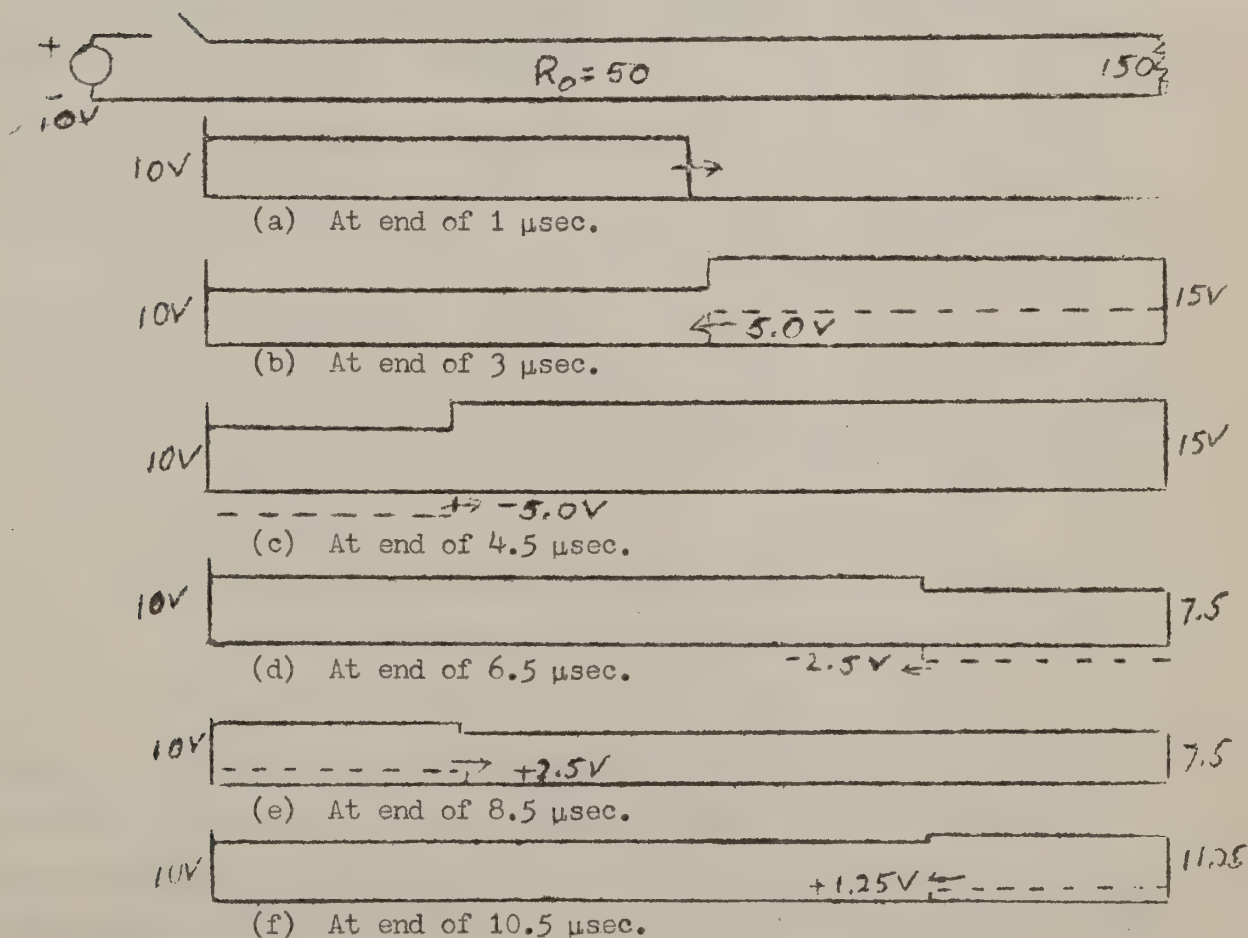 +
R₀=50
150
-
10V
10V
(a) At end of 1 μsec.
10V
15V
5.0V
(b) At end of 3 μsec.
10V
15V
-5.0V
(c) At end of 4.5 μsec.
10V
7.5
-2.5V
(d) At end of 6.5 μsec.
10V
7.5
+2.5V
(e) At end of 8.5 μsec.
10V
11.25
+1.25V
(f) At end of 10.5 μsec.